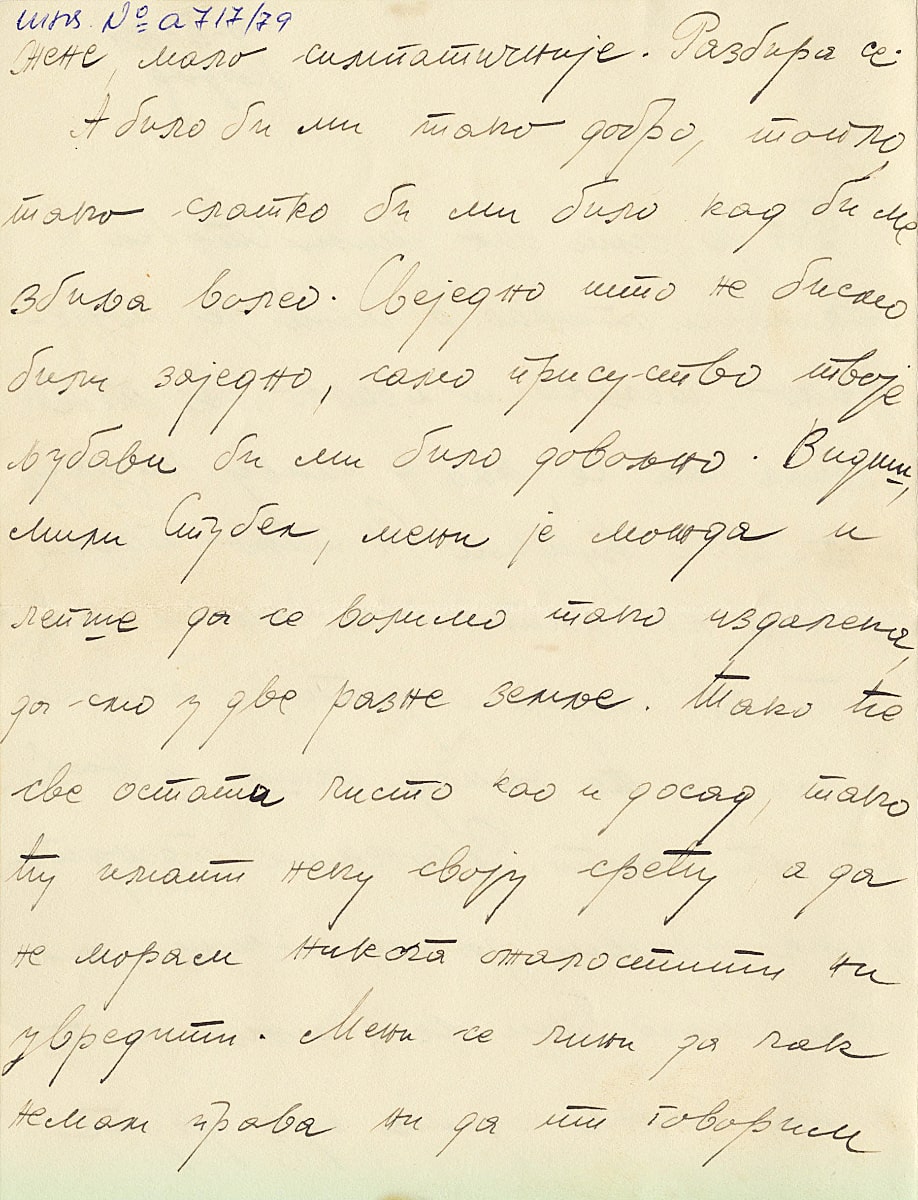 инв. № a 717/79
жене, мало симпатичније. Разбира се.
А било би ми тако добро, топло,
тако слатко би ми било кад би ме
збиља волео. Свеједно што не бисмо
били заједно, само присуство твоје
љубави би ми било довољно. Видиш,
мили Стубек, мени је можда и
лепше да се волимо тако издалека,
да смо у две разне земље. Тако ће
све остати чисто као и досад, тако
ћу имати неку своју срећу, а да
не морам никога ожалостити ни
увредити. Мени се чини да чак
немам права ни да ти говорим